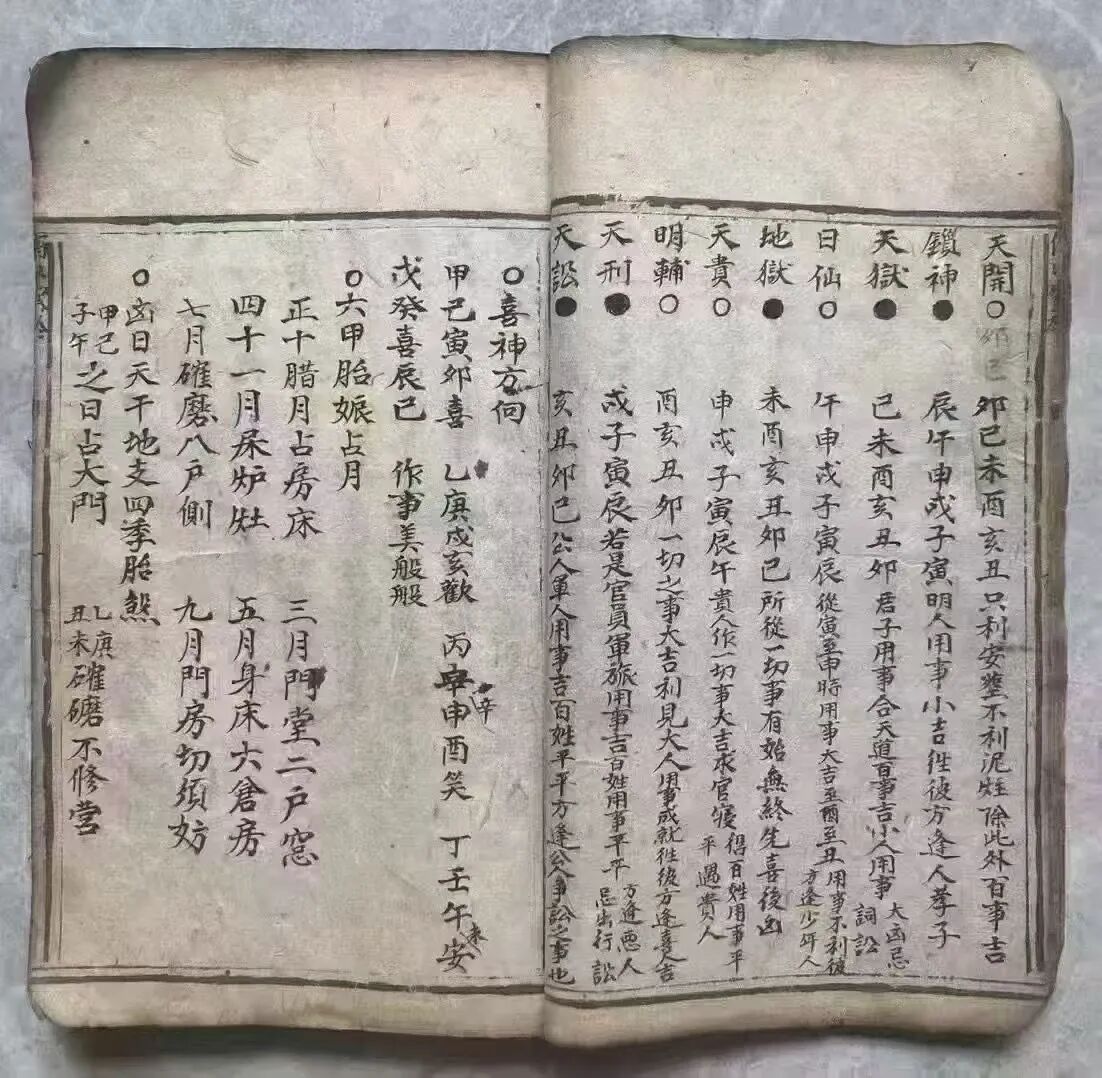 天開○ 卯巳未酉亥丑只利安塟不利泥灶除此外百事吉
鎖神● 辰午申戌子寅明人用事小吉徃彼方逢人孝子
天獄● 巳未酉亥丑卯君子用事合天道百事吉小人用事大凶忌詞訟
日仙○ 午申戌子寅辰從寅至申時用事大吉至酉至丑用事不利彼方逢少年人
地獄● 未酉亥丑卯巳所從一切事有始無終先喜後凶
天貴○ 申戌子寅辰午貴人作一切事大吉求官得百姓用事平平遇貴人
明輔○ 酉亥丑卯一切之事大吉利見大人用事成就徃後方逢喜人吉
天刑● 戌子寅辰若是官員軍旅用事吉百姓用事平平方逢惡人忌出行訟
天訟● 亥丑卯巳公人軍人用事吉百姓平平方逢公事訟之事也
○喜神方向
甲己寅卯喜 乙庚戌亥歡 丙辛申酉笑 丁壬午未安
戊癸喜辰巳 作事美般般
○六甲胎娠占月
正十腊月占房床 三月門堂二戶窓
四十一月杘炉灶 五月身床六倉房
七月碓磨八戶側 九月門房切須妨
○凶日天干地支四季胎煞
甲己子午之日占大門 乙庚丑未碓磨不修营